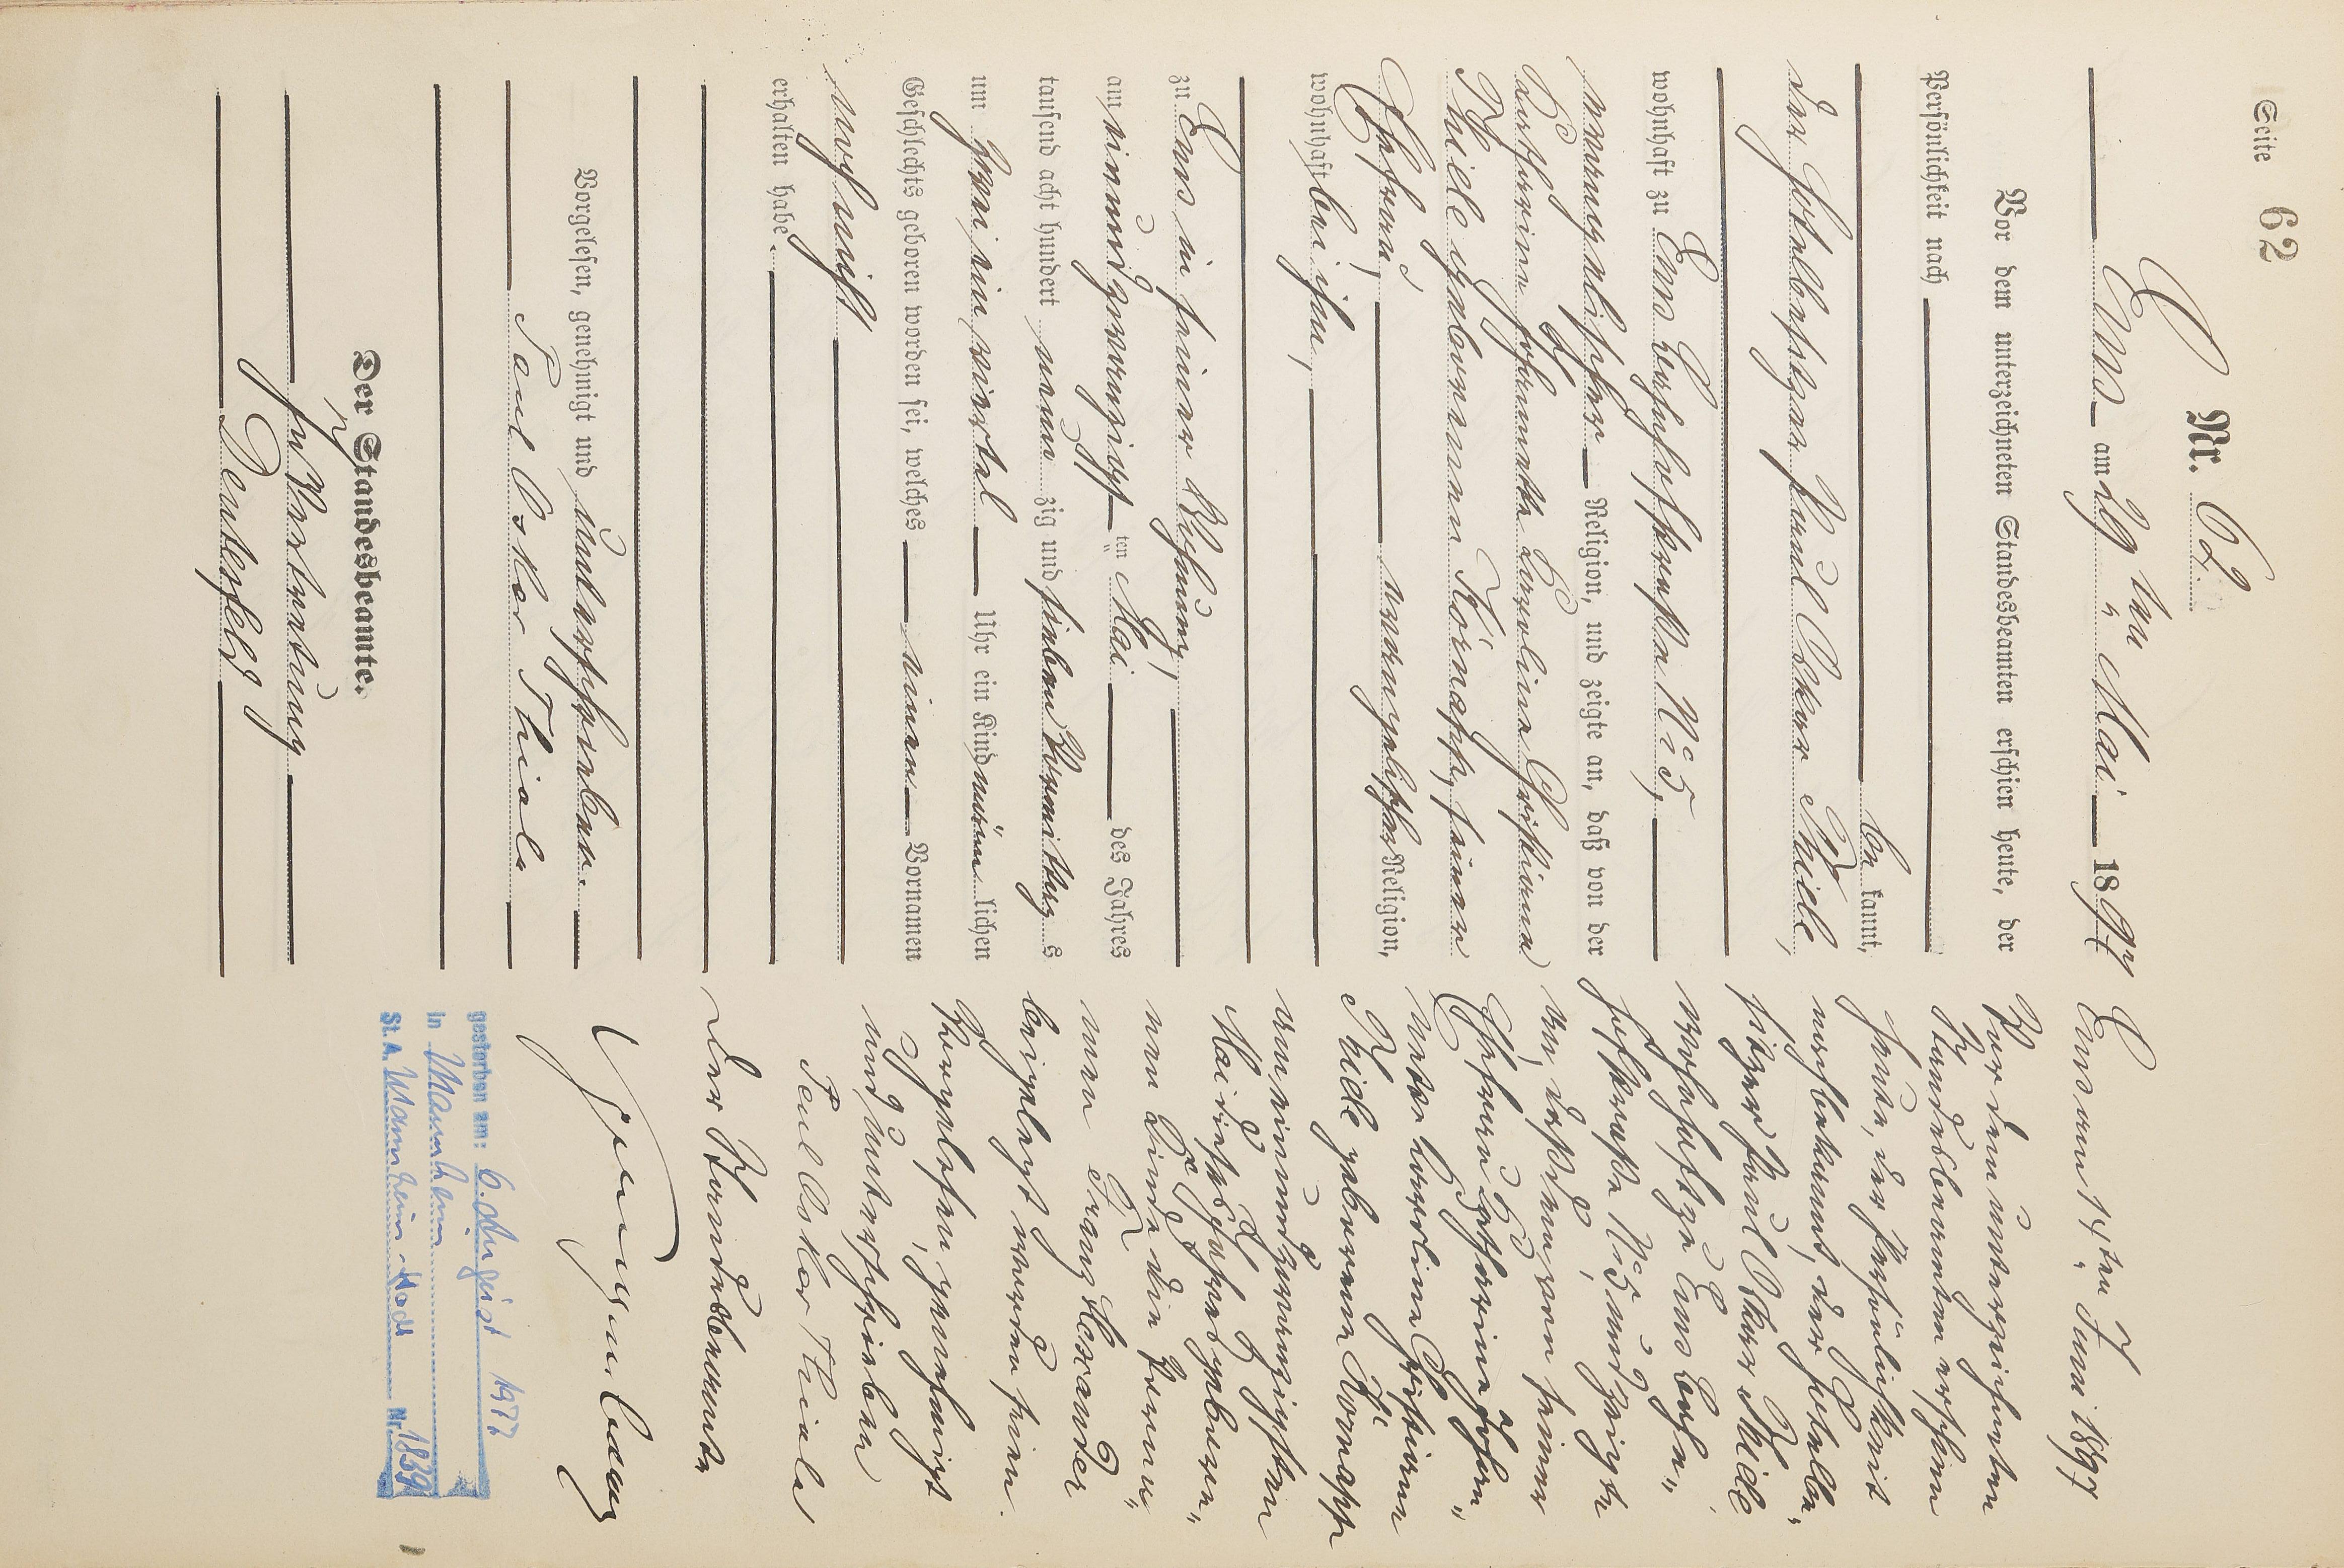 Seite 62
Nr. 62.
Ems am 29ten Mai 1897
Vor dem unterzeichneten Standesbeamten erschien heute, der
Persönlichkeit nach
bekannt,
der Hotelbesitzer Paul Oskar Thiele,
wohnhaft zu Ems Bahnhofstraße No 5,
evangelischer Religion, und zeigte an, daß von der
Katharine Caroline Christiane
Thiele geborenen Kornapp, seiner
Ehefrau,
evangelischer Religion,
wohnhaft bei ihm,
zu Ems in seiner Wohnung,
am einundzwanzigsten Mai des Jahres
tausend acht hundert neunzig und sieben Vormittags
um drei ein viertel Uhr ein Kind männlichen
Geschlechts geboren worden sei, welches einen Vornamen
noch nicht
erhalten habe.
Vorgelesen, genehmigt und unterschrieben.
Paul Oskar Thiele
Der Standesbeamte.
In Vertretung
Ems am 14ten Juni 1897
Vor dem unterzeichneten
Standesbeamten erschien
heute, der Persönlichkeit
nach bekannt, der Hotelbe"
sitzer Paul Oskar Thiele
wohnhaft zu Ems Bahn"
hofstraße No 5 und zeigte
an, daß dem von seiner
Ehefrau Katharine
Caroline Christiane
Thiele geborenen Kornapp
am einundzwanzigsten
Mai dieses Jahres gebore"
nen Kinde die Vorna"
men Franz Alexander
beigelegt worden seien.
Vorgelesen, genehmigt
und unterschrieben
Paul Oskar Thiele
Der Standesbeamte
gestorben am: 6. August 1977
in Mannheim
St. A. Mannheim-Nord Nr. 1839